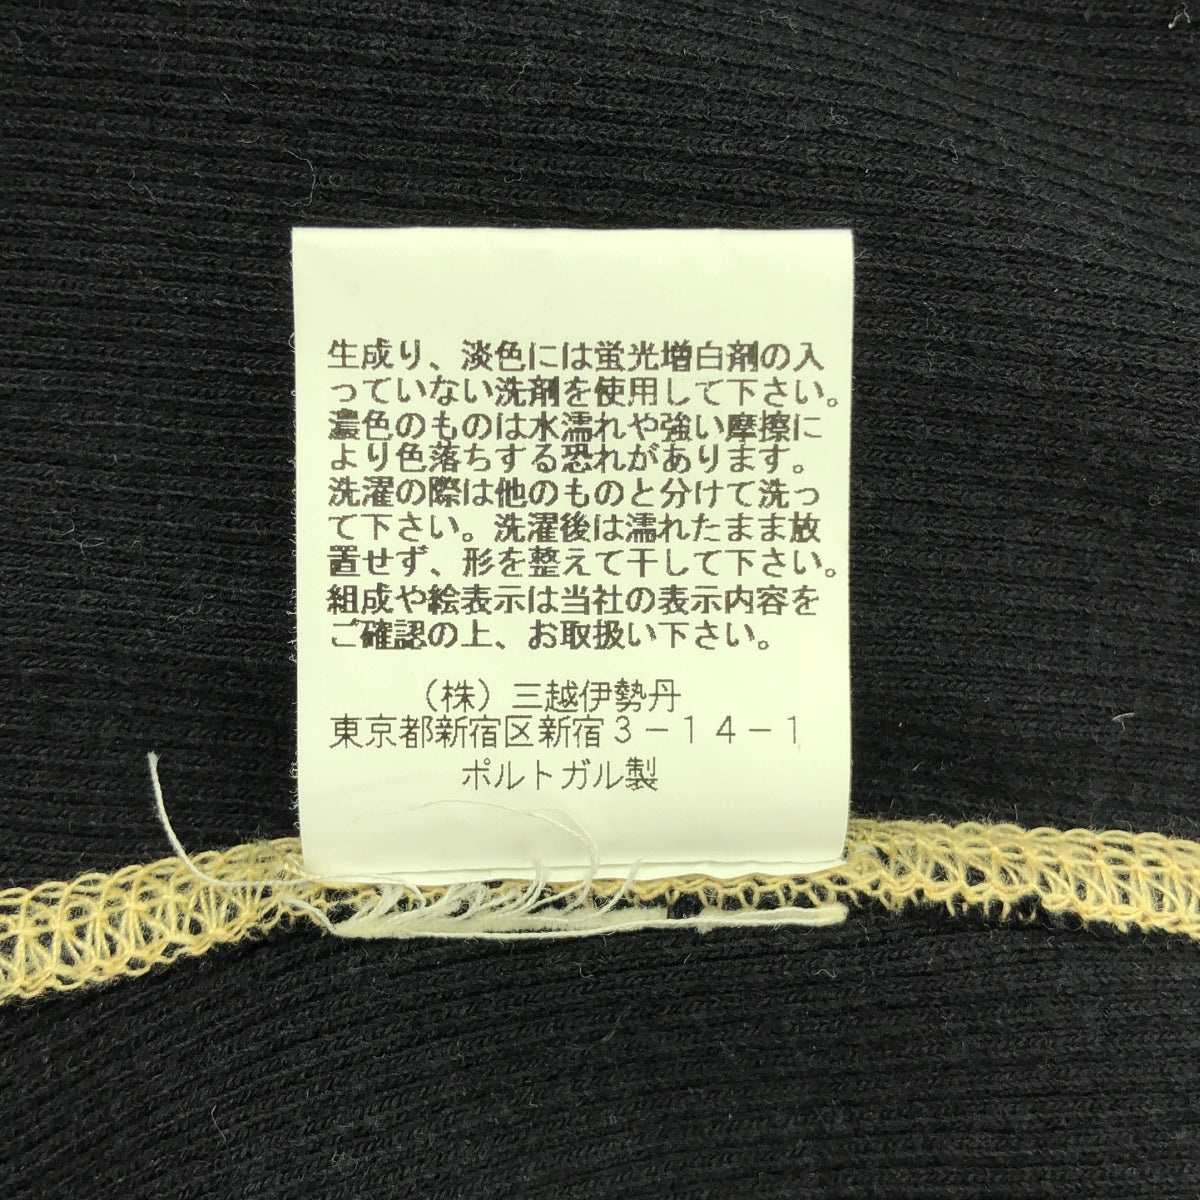 生成り、淡色には蛍光増白剤の入
っていない洗剤を使用して下さい。
濃色のものは水濡れや強い摩擦に
より色落ちする恐れがあります。
洗濯の際は他のものと分けて洗っ
て下さい。洗濯後は濡れたまま放
置せず、形を整えて干して下さい。
組成や絵表示は当社の表示内容を
ご確認の上、お取扱い下さい。
（株）三越伊勢丹
東京都新宿区新宿３－１４－１
ポルトガル製